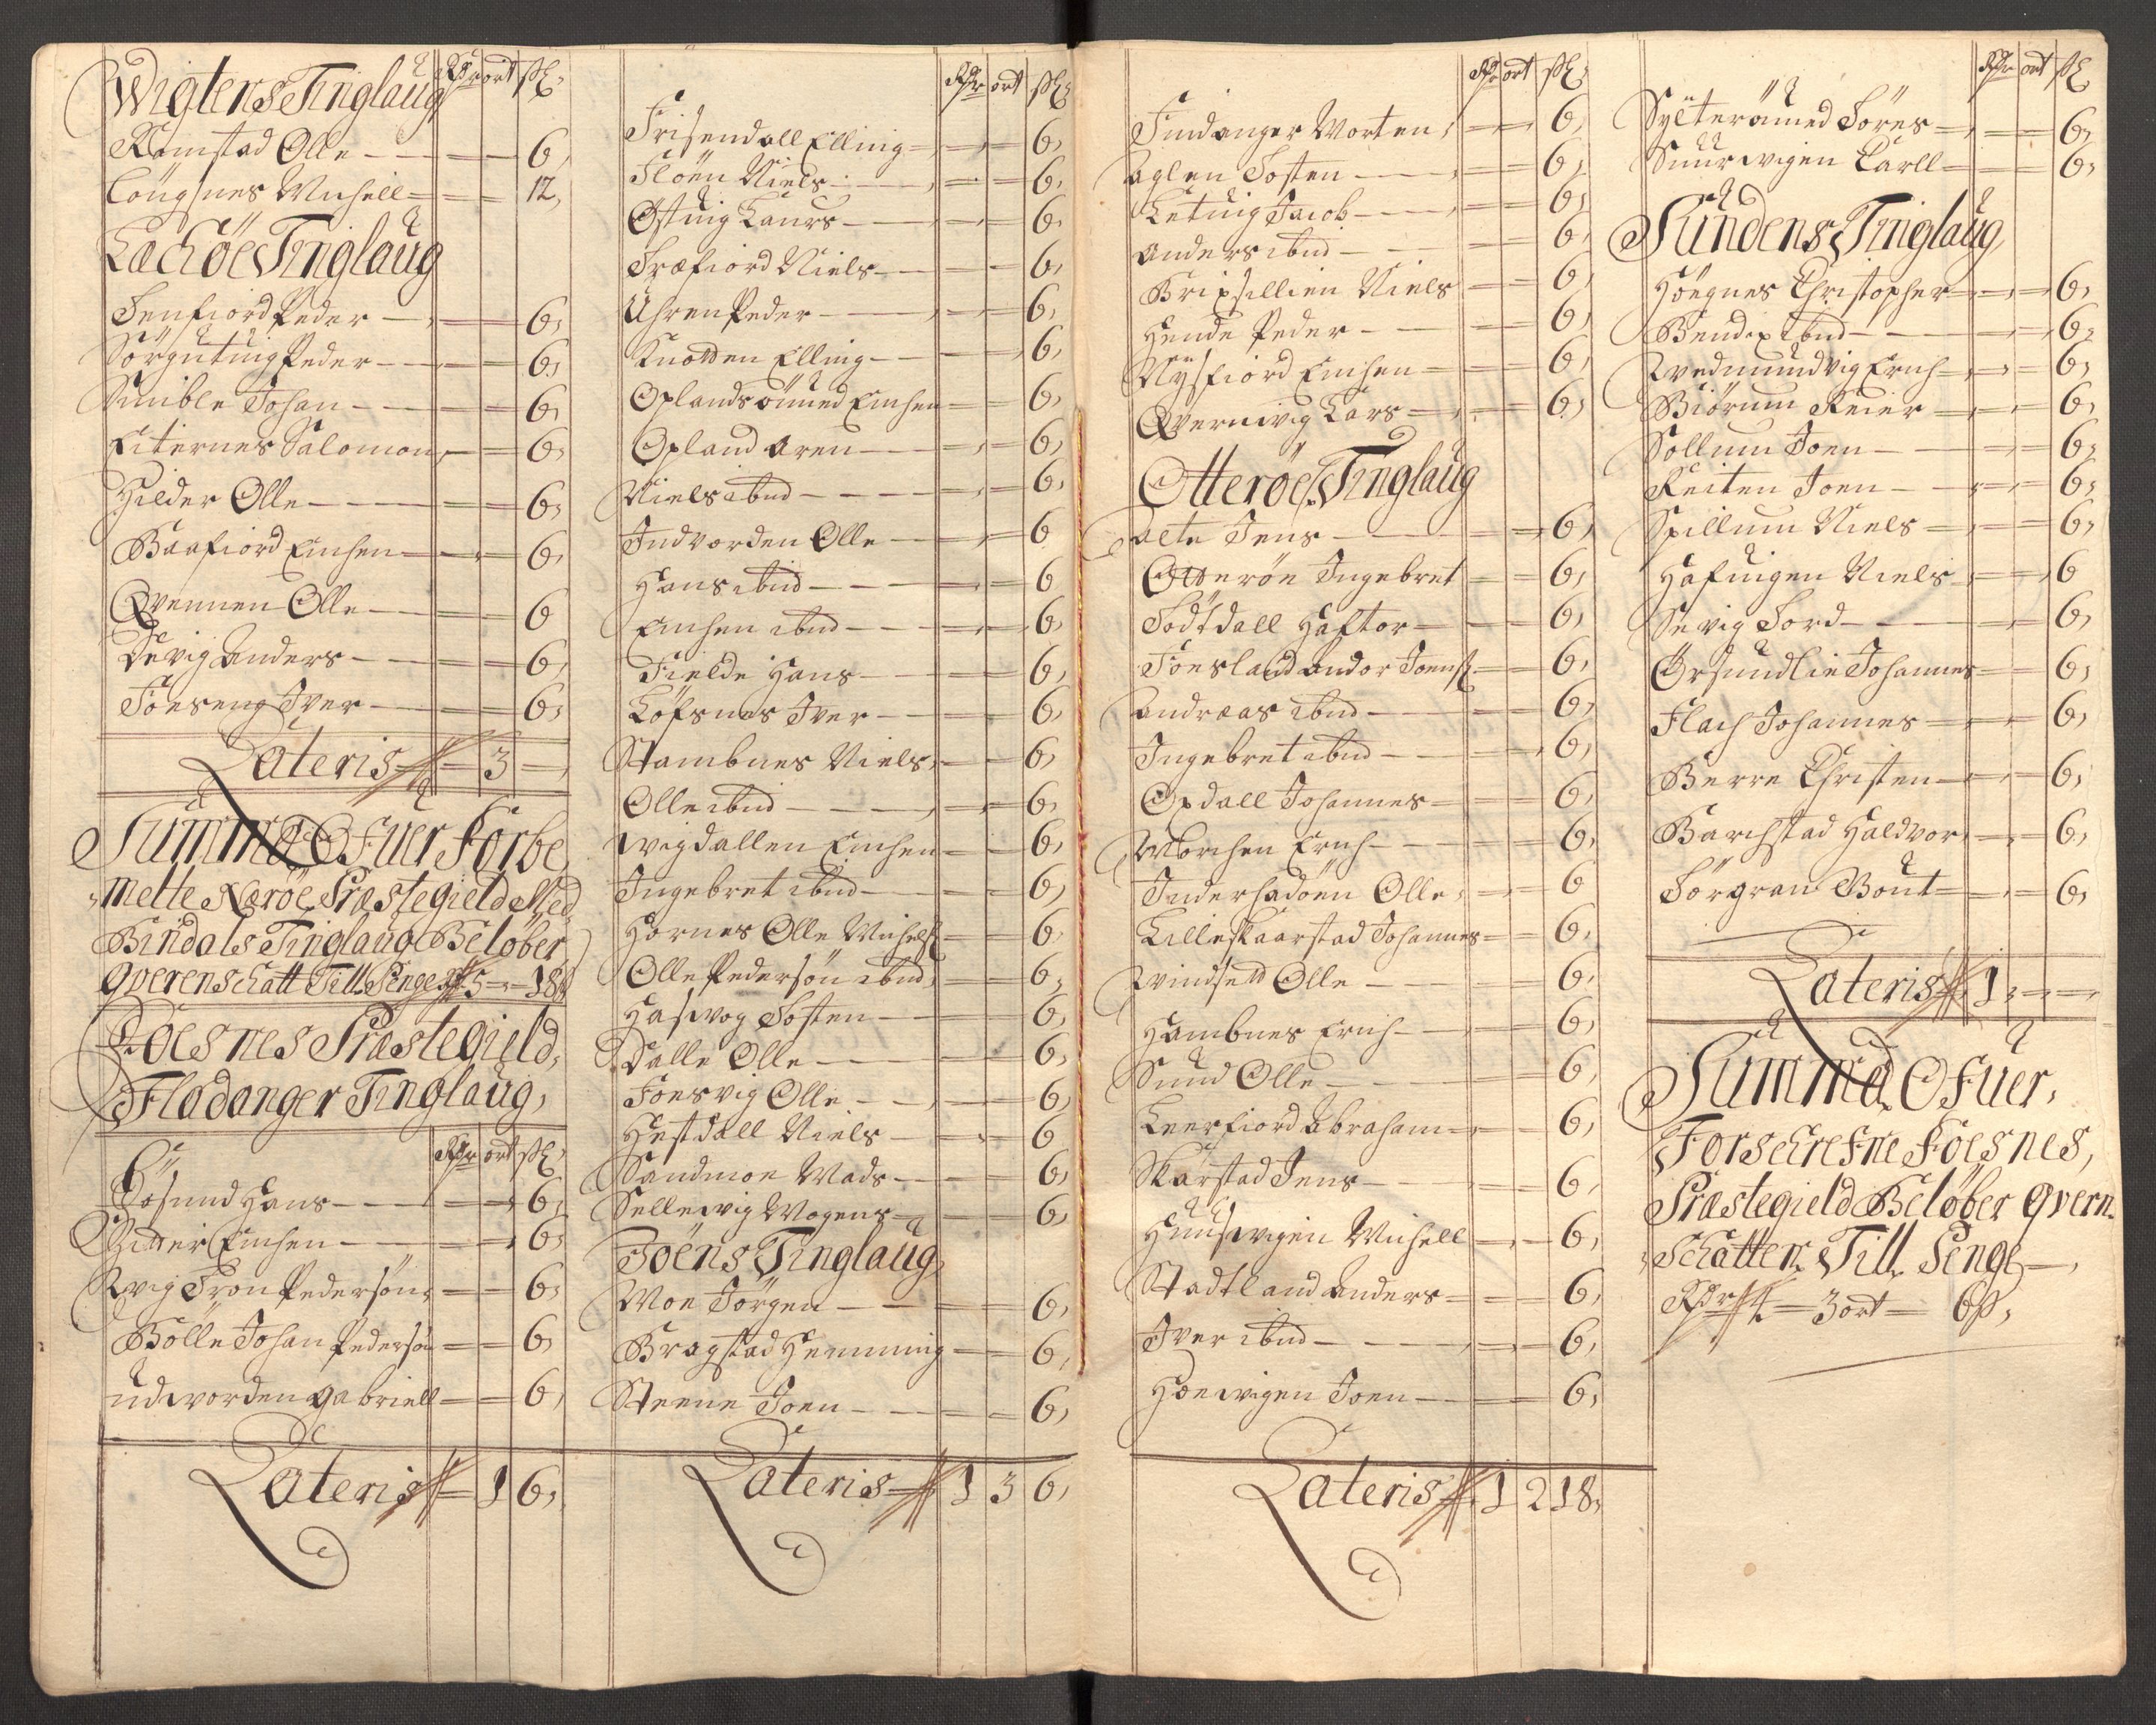 Wigtens Tinglaug Rdr ort sk
Ramstad Olle 6
Lougnes Michell 12
Lechøe Tinglaug
Senfiord Peder 6
Sørgutuig Peder 6
Smible Johan 6
Fiternes Salomon 6
Hilder Olle 6
Baafiord Einchen 6
Qvennen Olle 6
Devig Anders 6
Foeseng Iver 6
Lateris 3
Summa Ofuer Forbe
mette Nærøe Præstegield Med
Bindals Tinglaug Beløber
Qverenschatt Till Penge 5 – 18
Foesnes Præstegield,
Fladanger Tinglaug,
Rdr ort sk
Døsund Hans 6
Gitter Einchen 6
Tvig Tron Pedersøn 6
Bølle Johan Pedersøn 6
Udworden Gabriell 6
Lateris 1 6
Rdr ort sk
Frisendall Elling 6
Fløen Niels 6
Østuig Laurs 6
Træfiord Niels 6
Uhren Peder 6
Knotten Elling 6
Oplandsømed Einchen 6
Opland Aren 6
Niels ibid 6
Indvorden Olle 6
Hans ibid 6
Einchen ibid 6
Fielde Hans 6
Løfsnes Iver 6
Stambnes Niels 6
Olle ibid 6
Wigdallen Einchen 6
Ingebret ibid 6
Hornes Olle Michels 6
Olle Pedersøn ibid 6
Hasvog Tosten 6
Dalle Olle 6
Foesvig Olle 6
Hestdall Niels 6
Sandmoe Mads 6
Sellewig Mogens 6
Joens Tinglaug
Moe Jørgen 6
Bragstad Hemming 6
Steene Joen 6
Lateris 1 3 6
Rdr ort sk
Findanger Morten 6
Aglen Tosten 6
Setuig Jacob 6
Anders ibid 6
Brixsillien Niels 6
Hende Peder 6
Nysfiord Einchen 6
Qvernvig Lars 6
Otterøe Tinglaug
Aelte Jens 6
Otterøe Ingebret 6
Fodtdall Haftor 6
Foesland Andor Joens 6
Andreas ibid 6
Ingebret ibid 6
Opdall Johannes 6
Morchen Erich 6
Inderhadøen Olle 6
Lilleskaarstad Johannes 6
Windsett Olle 6
Hambnes Erich 6
Sund Olle 6
Leerfiord Abraham 6
Skarstad Jens 6
Huuswigen Michell 6
Stadtland Anders 6
Iver ibid 6
Hoewigen Joen 6
Lateris 1 2 18
Rdr ort sk
Sylterømed Søren 6
Suurwigen Carll 6
Sundens Tinglaug
Høegnes Christopher 6
Bendix ibid 6
Tvedmundvig Erich 6
Biørum Reier 6
Sollum Joen 6
Reiten Joen 6
Spillum Niels 6
Hafuigen Niels 6
Sevig Tord 6
Ørsundlie Johannes 6
Flach Johannes 6
Berre Christen 6
Barchstad Haldvor 6
Sørgran Bout 6
Lateris 1
Summa Ofuer
Forschrefne Foesnes,
Præstegield Beløber Qvern
Schatten Till Penge
Rdr 4 – 3 ort – 6 s